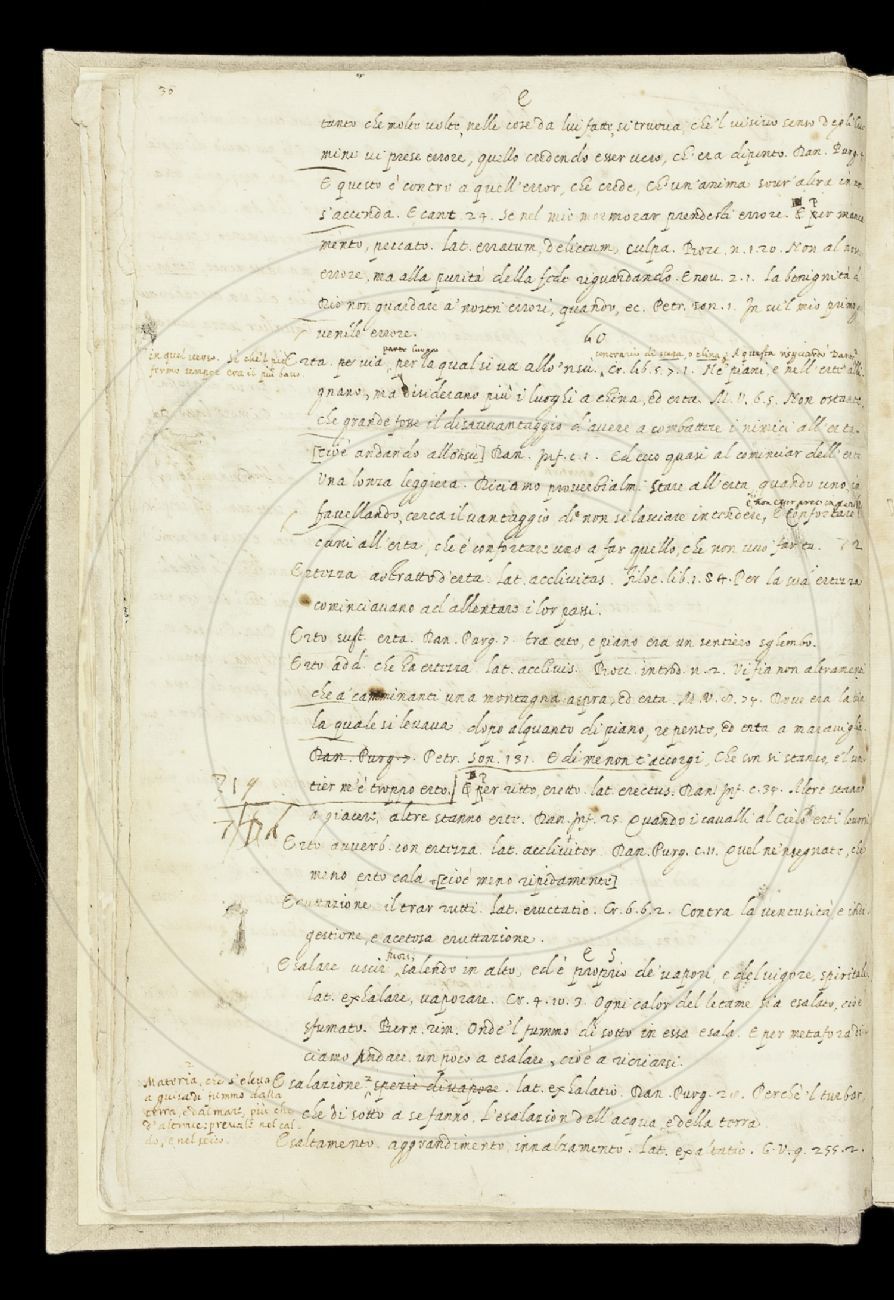 30
E
tanto che molte volte, nelle cose da lui fatte, si truova, che'l visivo senso degli huo
mini vi prese errore, quello credendo esser vero, ch'era dipinto. Dan. Purg. 4
E questo è contro a quell'error, che crede, Ch'un'anima sovr'altra in
s'accenda. E cant. 24. Se nel mio mormorar prendesti errore. E per manca
mento, peccato. lat. erratum, delictum, culpa. Bocc. n. 1. 20. Non al
errore, ma alla purità della fede riguardando. E nov. 2. 1. la benignità di
Dio non guardare a' nostri errori, quando, ec. Petr. son. 1. In su'l mio primo
venile errore.
60
parte luogo
contrario di scesa, o china. A questa riguardò Dan.
in quel verso. Sì che'l piè
fermo sempre era il più basso
Erta. per via, per la qual si va allo 'nsu. Cr. lib. 5. 7. 1. Ne' piani, e nell'erte alli
gnano, ma disiderano più i luoghi a china, ed erta. M. V. 6. 5. Non ostante,
che grande fosse il disavvantaggio d'avere a combattere i nimici all'erta.
[cioè andando all'onsu] Dan. Inf. c. 1. Ed ecco quasi al cominciar dell'erta
Una lonza leggiera. Diciamo proverbialm. Stare all'erta, quando uno, in
favellando, cerca il vantaggio di non si lasciare intendere, E Confortare i
cani all'erta, che è confortare uno a far quello, che non vuo' far tu. 72
Ertezza astratto d'erta. lat. acclivitas. Filoc. lib. 1. 84. Per la sua ertezza
cominciavano ad allentare i lor passi.
Erto sust. erta. Dan. Purg. 7. tra erto, e piano era un sentiero sghembo.
Erto add. che ha ertezza. lat. acclivis. Bocc. introd. n. 2. Vi fia non altramenti
che a' camminanti una montagna aspra, ed erta. M. V. 8. 74. Dove era la via
la quale si levava dopo alquanto di piano, repente, ed erta a maraviglia.
Dan. Purg. 7. Petr. Son. 131. E di me non t'accorgi, Che son sì stanco, e'l sen
tier m'è troppo erto. E per ritto, eretto. lat. erectus. Dan. Inf. c. 34. Altre stanno
a giacere, altre stanno erte. Dan. Inf. 25. Quando i cavalli al Cielo erti levorsi
Erto avverb. con ertezza. lat. accliviter. Dan. Purg. c. 11. Quel ne 'nsegnate, che
meno erto cala [cioè meno ripidamente]
Eruttazione il trar rutti. lat. eructatio. Cr. 6. 6. 2. Contra la ventusità e indi
gestione, e acetosa eruttazione.
fuori,
E S
Esalare uscir salendo in alto, ed è proprio de' vapori, e del vigore, spiritale
lat. exhalare, vaporare. Cr. 4. 10. 3. Ogni calor del letame sia esalato, cioè
sfumato. Bern. rim. Onde'l fummo di sotto in essa esala. E per metafora di
ciamo Andare un poco a esalare, cioè a ricriarsi.
Materia, che s'eleva
a guisa di fummo dalla
terra, e dal mare, più che
d'altrove: prevale nel cal
do, e nel secco.
Esalazione spezie di vapore. lat. exhalatio. Dan. Purg. 28. Perchè'l turbar,
che di sotto a se fanno, L'esalazion dell'acqua, e della terra.
Esaltamento. aggrandimento, innalzamento. lat. exaltatio. G. V. 9. 255. 2.